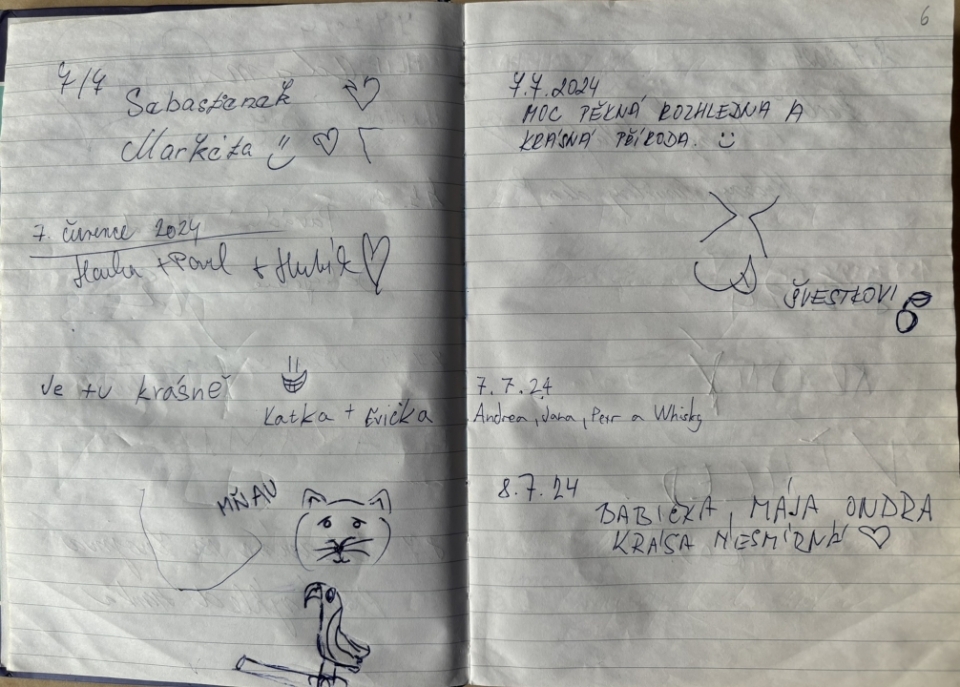 7/7
Sabastanak
Markéta
7. července 2024
Hanka + Pavel + Hubík
Je tu krásně
Katka + Evička
MŇAU
6
7.7.2024
MOC PĚKNÁ ROZHLEDNA A
KRÁSNÁ PŘÍRODA.
ŠVESTKOVI
7.7.24
Andrea, Jana, Petr a Whisky
8.7.24
BABIČKA, MÁJA ONDRA
KRÁSA NESMÍRNÁ